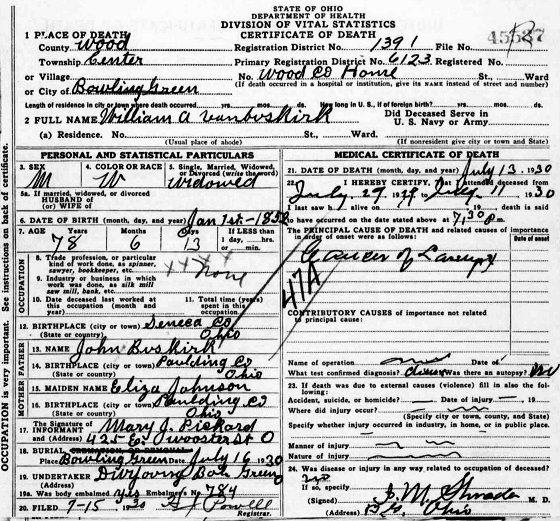 STATE OF OHIO
DEPARTMENT OF HEALTH
DIVISION OF VITAL STATISTICS
CERTIFICATE OF DEATH
1 PLACE OF DEATH
County Wood Registration District No. 1391 File No. 45537
Township Center Primary Registration District No. 6123 Registered No.
or Village No. Wood Co Home St., Ward
(If death occurred in a hospital or institution, give its NAME instead of street and number)
or City of Bowling Green
Length of residence in city or town where death occurred yrs. mos. ds. How long in U. S., if of foreign birth? yrs. mos. ds.
2 FULL NAME William A Vanbuskirk Did Deceased Serve in
U. S. Navy or Army
(a) Residence. No. St., Ward.
(Usual place of abode) (If nonresident give city or town and State)
PERSONAL AND STATISTICAL PARTICULARS
3. SEX 4. COLOR OR RACE 5. Single, Married, Widowed,
or Divorced (write the word)
M W Widowed
5a. If married, widowed, or divorced
HUSBAND of
(or) WIFE of
6. DATE OF BIRTH (month, day, and year) Jan 1st - 1852
7. AGE Years Months Days If LESS than
1 day, hrs.
or min.
78 6 13
OCCUPATION
8. Trade, profession, or particular
kind of work done, as spinner,
sawyer, bookkeeper, etc. None
9. Industry or business in which
work was done, as silk mill
saw mill, bank, etc.
10. Date deceased last worked at
this occupation (month and
year)
11. Total time (years)
spent in this
occupation
12. BIRTHPLACE (city or town) Seneca Co
(State or country) Ohio
FATHER
13. NAME John Buskirk
14. BIRTHPLACE (city or town) Paulding Co
(State or country) Ohio
MOTHER
15. MAIDEN NAME Eliza Johnson
16. BIRTHPLACE (city or town) Paulding Co
(State or country) Ohio
17. The Signature of
INFORMANT Mary J. Pickard
and (Address) 425 E. Wooster St O
18. BURIAL, CREMATION, OR REMOVAL
Place Bowling Green Date July 16 1930
19. UNDERTAKER
(Address)
19a. Was body embalmed yes Embalmer's No. 784
20. FILED 7-15 1930 Powell
Registrar.
MEDICAL CERTIFICATE OF DEATH
21. DATE OF DEATH (month, day, and year) July 13, 1930
22. I HEREBY CERTIFY, That I attended deceased from
July 29 1930
I last saw h alive on death is said
to have occurred on the date stated above at 7:30 p m.
The PRINCIPAL CAUSE OF DEATH and related causes of importance
in order of onset were as follows: Date of onset
Cancer of Larynx
47A
CONTRIBUTORY CAUSES of importance not related
to principal cause:
Name of operation Date of
What test confirmed diagnosis? Was there an autopsy? No
23. If death was due to external causes (violence) fill in also the
following:
Accident, suicide, or homicide? Date of injury 19
Where did injury occur?
(Specify city or town, county, and State)
Specify whether injury occurred in industry, in home, or in public place.
Manner of injury
Nature of injury
24. Was disease or injury in any way related to occupation of deceased?
no
If so, specify
(Signed) J. M.
(Address) B. G. Ohio
OCCUPATION is very important. See instructions on back of certificate.